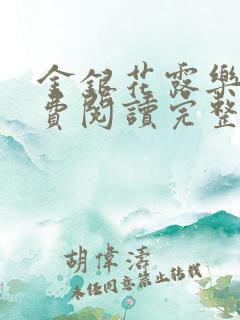 金銀花露樂
費閱讀完整
胡偉濤
未经同意禁止转载